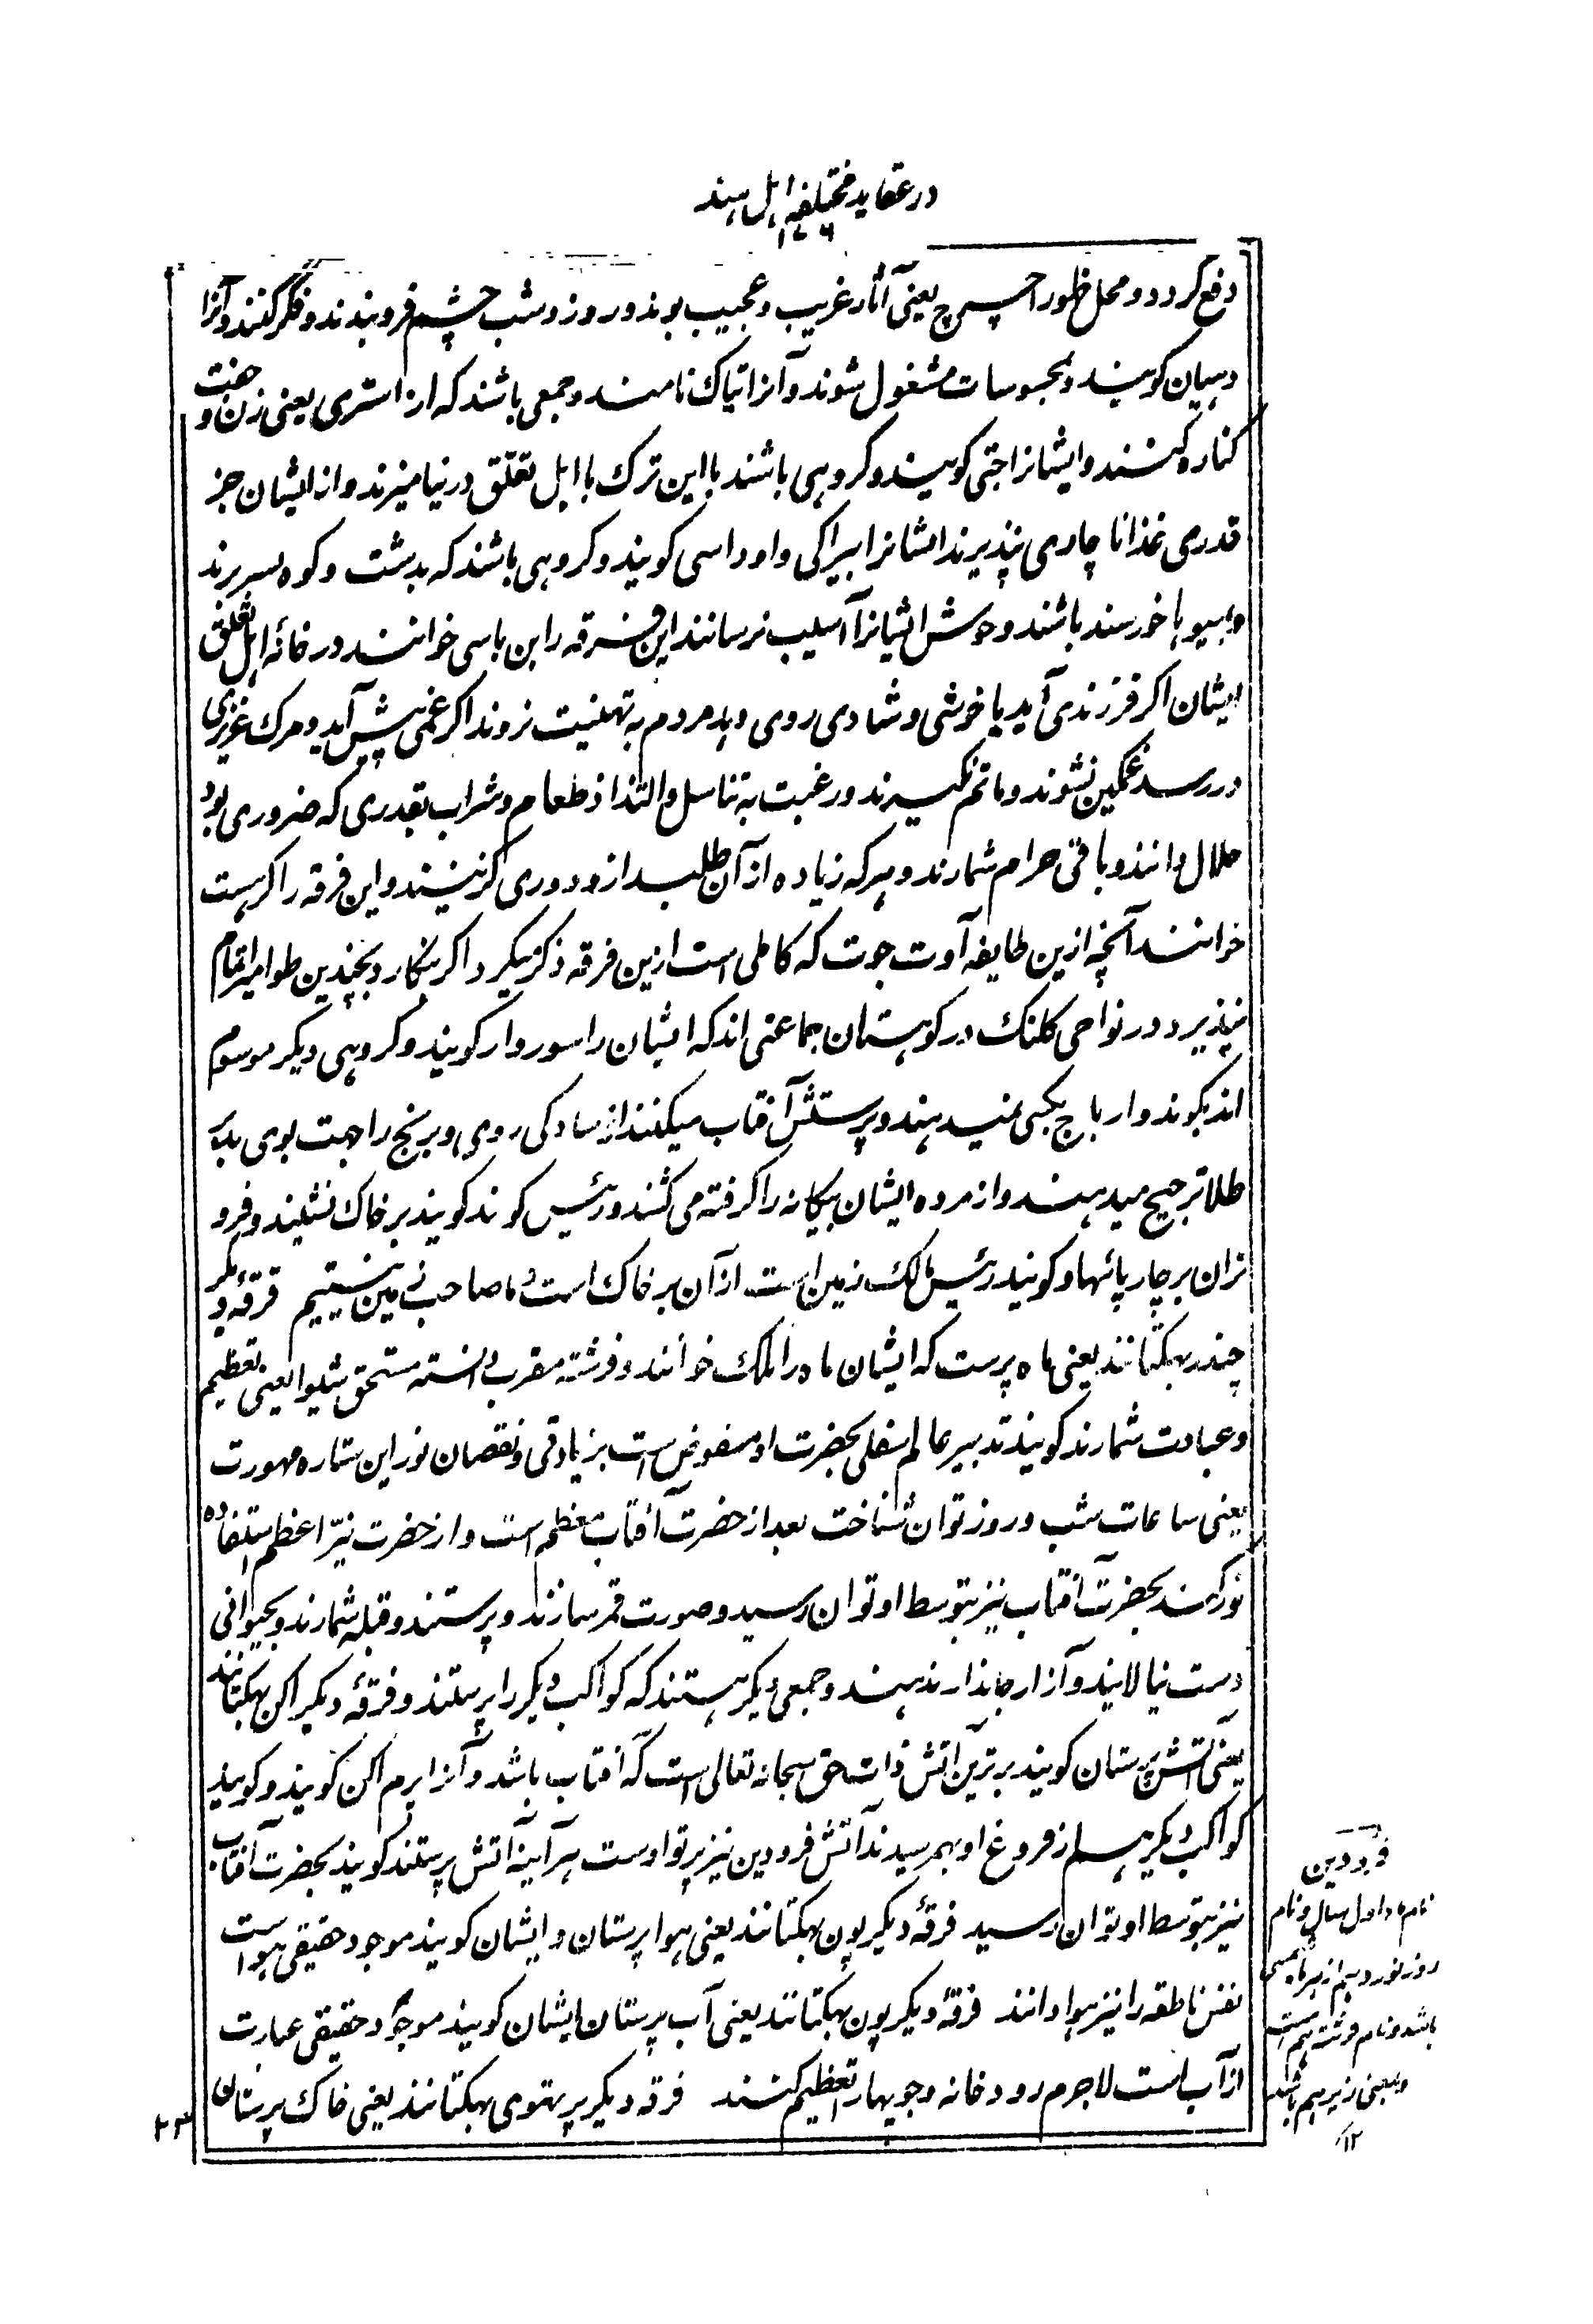 در عقاید مختلفه اہل ہند
۱۷۶
دفع گردد و محل ظهور اچرج یعنی آثار غریب و عجیب بوند و روز و شب چشم فرو بندند و فکر کنند و آنرا
دہیان گویند و بمحسوسات مشغول شوند و آنرا تیاک نامند و جمعی باشند که از استری یعنی زن و جفت
کناره کنند و ایشانرا جتی گویند و گروہی باشند با این ترک با اہل تعلق در نیامیزند و از ایشان جز
قدری غذا ناچاری نپذیرند ایشانرا بیراکی و اوداسی گویند و گروہی باشند که بدشت و کوه بسر برند
و بمیوہا خورسند باشند و وحوش ایشانرا آسیب نرسانند این فرقه را بن باسی خوانند در خانهٔ اہل تعلق
ایشان اکر فرزندی آید یا خوشی و شادی روی دہد مردم به تهنیت نروند اکر غمی پیش آید و مرک عزیزی
در رسد غمکین نشوند و ماتم نکیرند و رغبت به تناسل و التذاذ طعام و شراب بقدری که ضروری بود
حلال دانند و باقی حرام شمارند و ہر که زیاده از آن طلبد ازو دوری گزینند و این فرقه را گرہست
خوانند آنچه ازین طایفه آوت جوت که کاملی است ازین فرقه ذکر میکرد اکر بنکارد بچندین طوامیر اتمام
نپذیرد در نواحی کلنک در کوہستان جماعتی اند که ایشان را سوروار گویند و گروہی دیگر موسوم
اند بکوندوار باج بکسی نمیدہند و پرستش آفتاب میکنند از سادگی روی و برنج را جهت بوی بد بر
طلا ترجیح میدہند و از مرده ایشان بیکانه را گرفته می کشند و رئیس کوند گویند بر خاک نشیند و فرو
تران بر چارپائها و گویند رئیس مالک زمین است از آن بر خاک است و ما صاحب زمین نیستیم فرقهٔ دیگر
چندر بهکتانند یعنی ماه پرست که ایشان ماه را ملک خوانند و فرشته مقرب دانسته مستحق سیوا یعنی تعظیم
و عبادت شمارند گویند تدبیر عالم سفلی بحضرت او مفوض است بزیادتی و نقصان نور این ستاره مهورت
یعنی ساعات شب و روز توان شناخت بعد از حضرت آفتاب معظم است و از حضرت نیّر اعظم استفاده
نور کند بحضرت آفتاب نیز بتوسط او توان رسید و صورت قمر سازند و پرستند و قبله شمارند و بحیوانی
دست نیالایند و آزار جاندار ندہند و جمعی دیگر ہستند که کواکب دیگر را پرستند و فرقهٔ دیگر اکن بهکتانند
یعنی آتش پرستان گویند برترین آتش ذات حق سبحانه تعالی است که آفتاب باشد و آنرا پرم اکن گویند و گویند
کواکب دیگر ہم از فروغ او بہم رسیدند آتش فرودین نیز پرتو اوست ہر آینه آتش پرستند گویند بحضرت آفتاب
نیز بتوسط او توان رسید فرقهٔ دیگر پون بهکتانند یعنی ہوا پرستان و ایشان گویند موجود حقیقی ہواست
نفس ناطقه را نیز ہوا دانند فرقهٔ دیگر پون بهکتانند یعنی آب پرستان ایشان گویند موجود حقیقی عبارت
از آب است لاجرم رودخانه و جویہا را تعظیم کنند فرقه دیگر پرتهوی بهکتانند یعنی خاک پرستان
فرودین
نام ماه اول سال و نام
روز نوزدہم از ہر ماه شمسی
باشد و نام فرشته ہم است
و بمعنی زیر ہم باشد
۱۲
۲۳